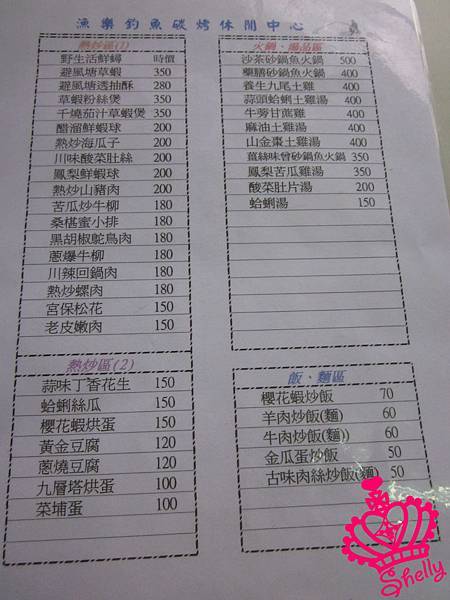 漁樂釣魚碳烤休閒中心
熱炒區(1)
野生活鮮鱘 時價
避風塘草蝦 350
避風塘透抽酥 280
草蝦粉絲煲 350
千燒茄汁草蝦煲 350
醋溜鮮蝦球 200
熱炒海瓜子 200
川味酸菜肚絲 200
鳳梨鮮蝦球 200
熱炒山豬肉 200
苦瓜炒牛柳 180
桑椹蜜小排 180
黑胡椒鴕鳥肉 180
蔥爆牛柳 180
川辣回鍋肉 180
熱炒螺肉 180
宮保松花 150
老皮嫩肉 150
熱炒區(2)
蒜味丁香花生 150
蛤蜊絲瓜 150
櫻花蝦烘蛋 150
黃金豆腐 120
蔥燒豆腐 120
九層塔烘蛋 100
菜埔蛋 100
火鍋、湯品區
沙茶砂鍋魚火鍋 500
藥膳砂鍋魚火鍋 400
養生九尾土雞 400
蒜頭蛤蜊土雞湯 400
牛旁甘蔗雞 400
麻油土雞湯 400
山金棗土雞湯 400
薑絲味噌砂鍋魚火鍋 350
鳳梨苦瓜雞湯 350
酸菜肚片湯 200
蛤蜊湯 150
飯、麵區
櫻花蝦炒飯 70
羊肉炒飯(麵) 60
牛肉炒飯(麵) 60
金瓜蛋炒飯 50
古味肉絲炒飯(麵) 50
Shelly